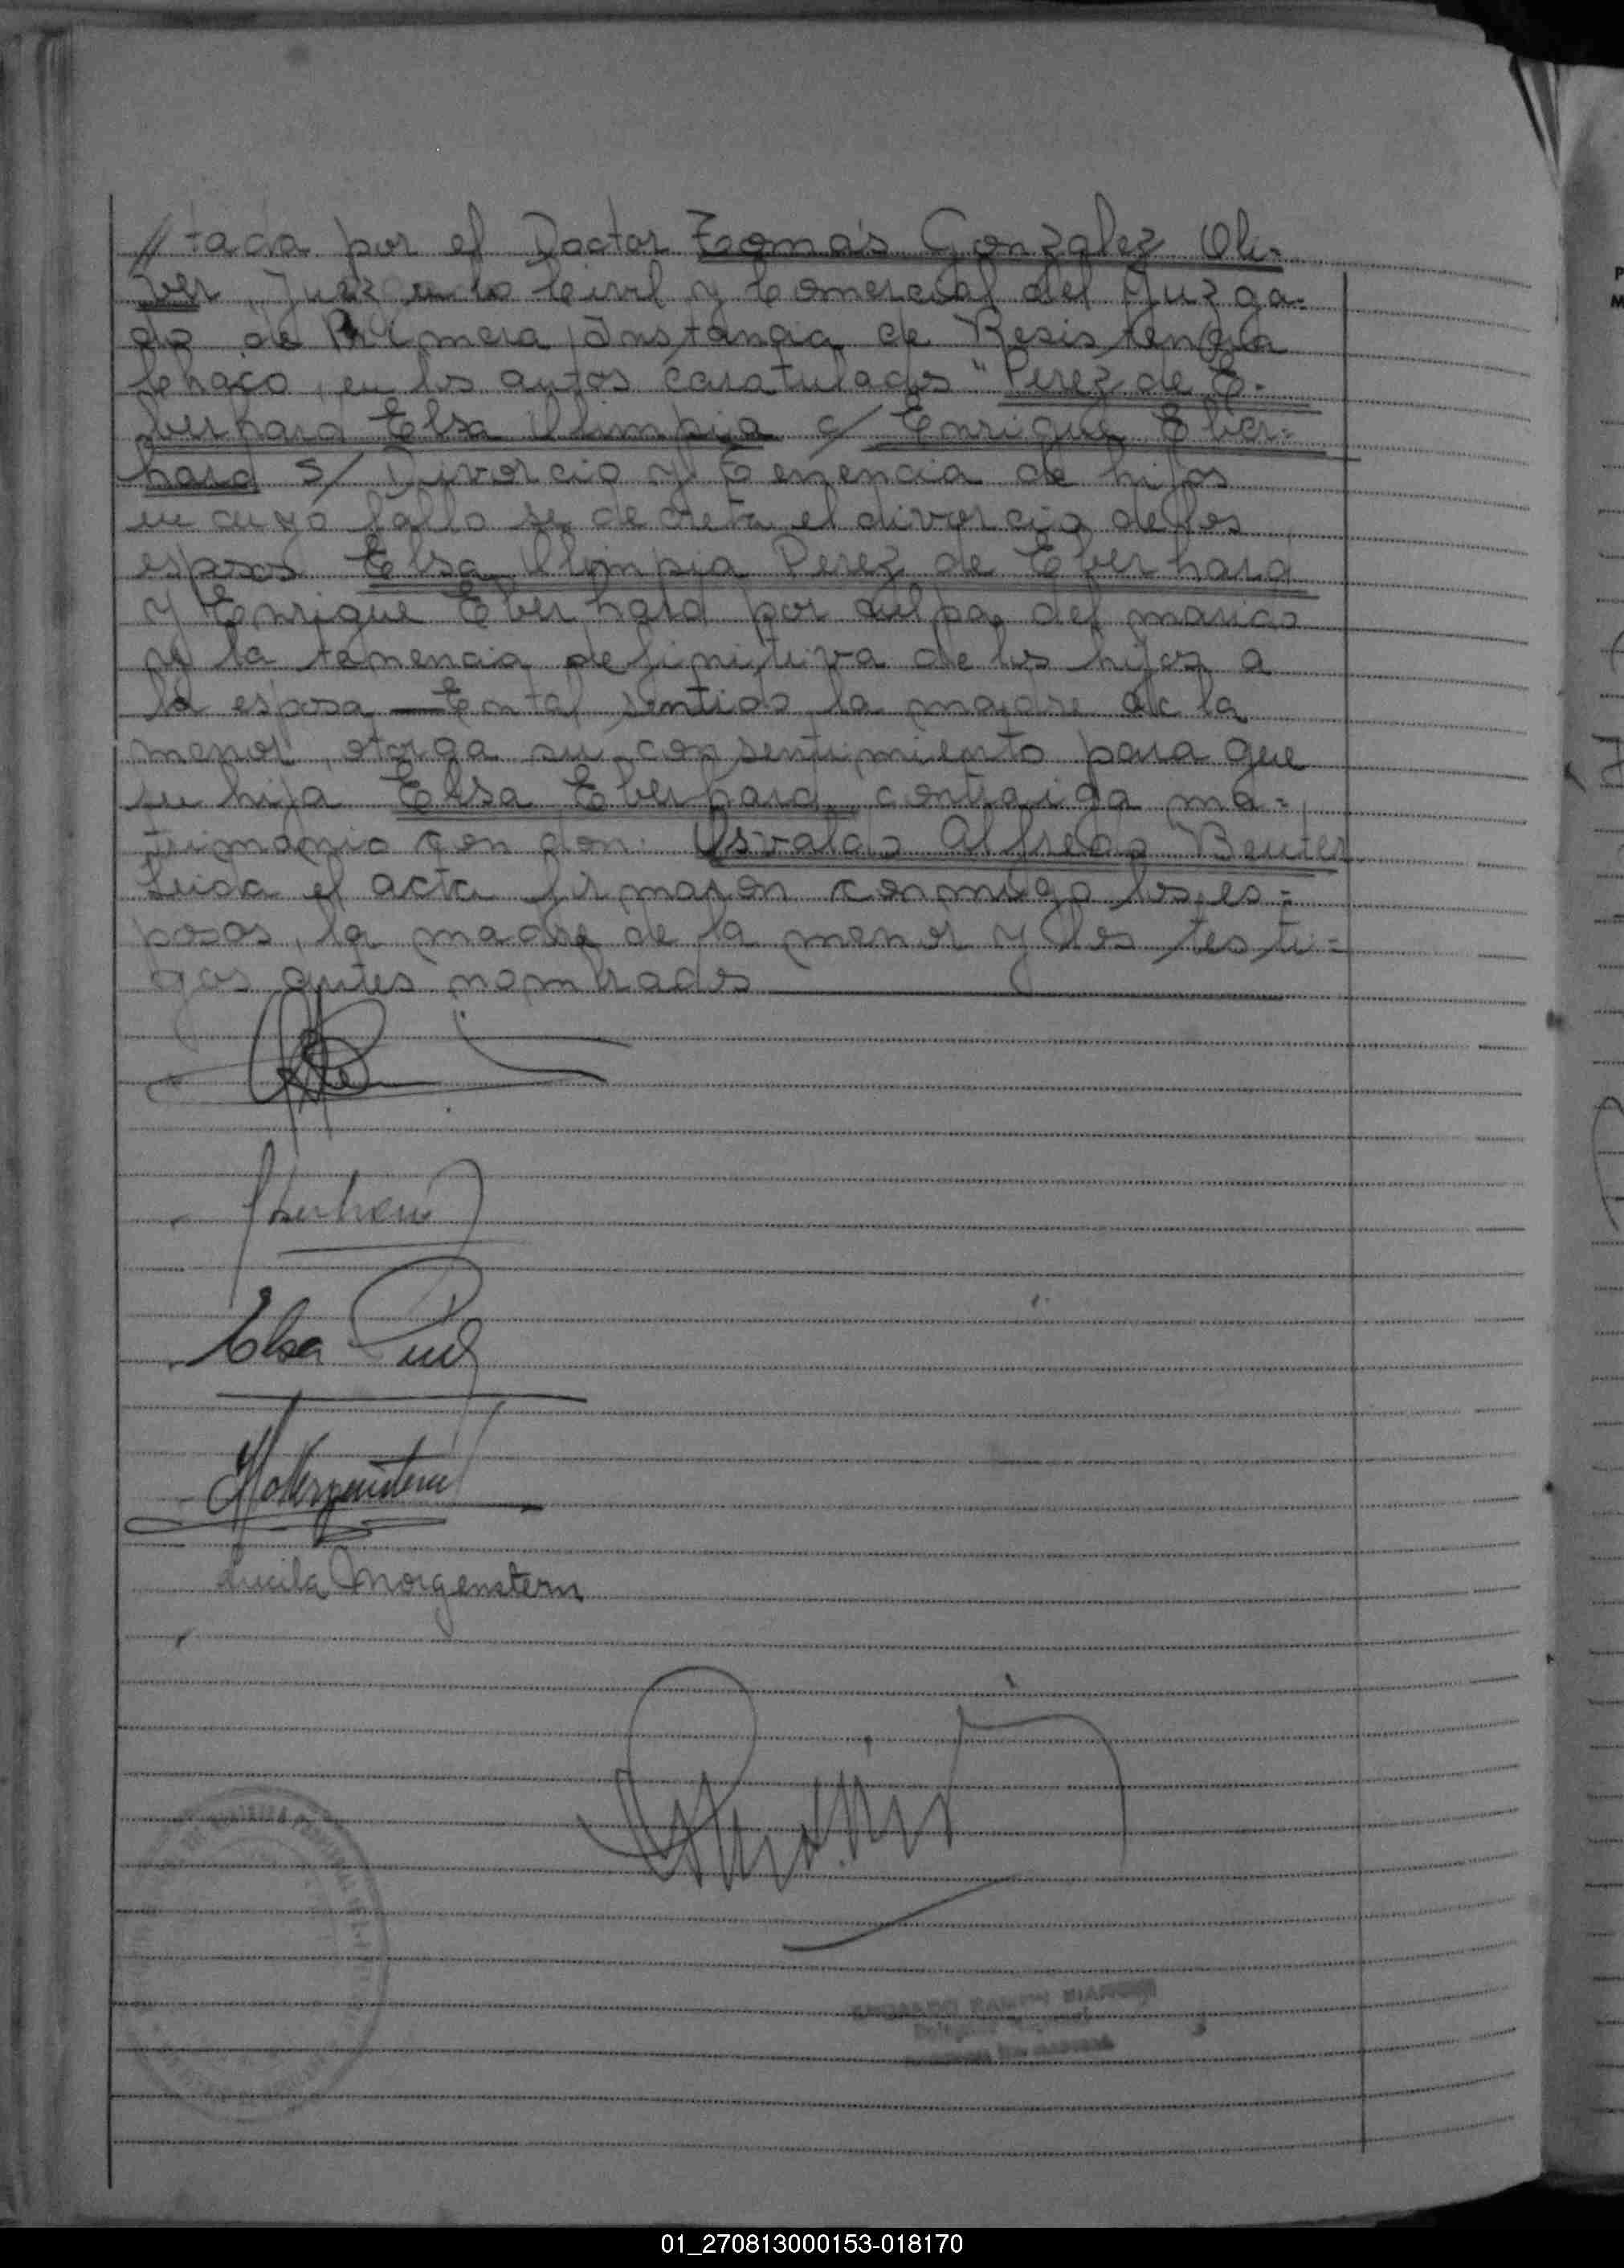 // tada por el Doctor Teomás Gonzalez Oli=
ver, Juez en lo Civil y Comercial del Juzga=
do de Primera Instancia de Resistencia
Chaco, en los autos caratulados "Perez de E=
berhard Elsa Olimpia c/ Enrique Eber=
hard s/ Divorcio y Tenencia de hijos
en cuyo fallo se decreta el divorcio de los
esposos Elsa Olimpia Perez de Eberhard
y Enrique Eberhard por culpa del marido
y la tenencia definitiva de los hijos a
la esposa — En tal sentido la madre de la
menor, otorga su consentimiento para que
su hija Elsa Eberhard contraiga ma=
trimonio con don: Osvaldo Alfredo Beuter
Leida el acta firmaron conmigo los es=
posos, la madre de la menor y los testi=
gos antes nombrados
Elsa
Lucila Morgenstern
01_270813000153-018170